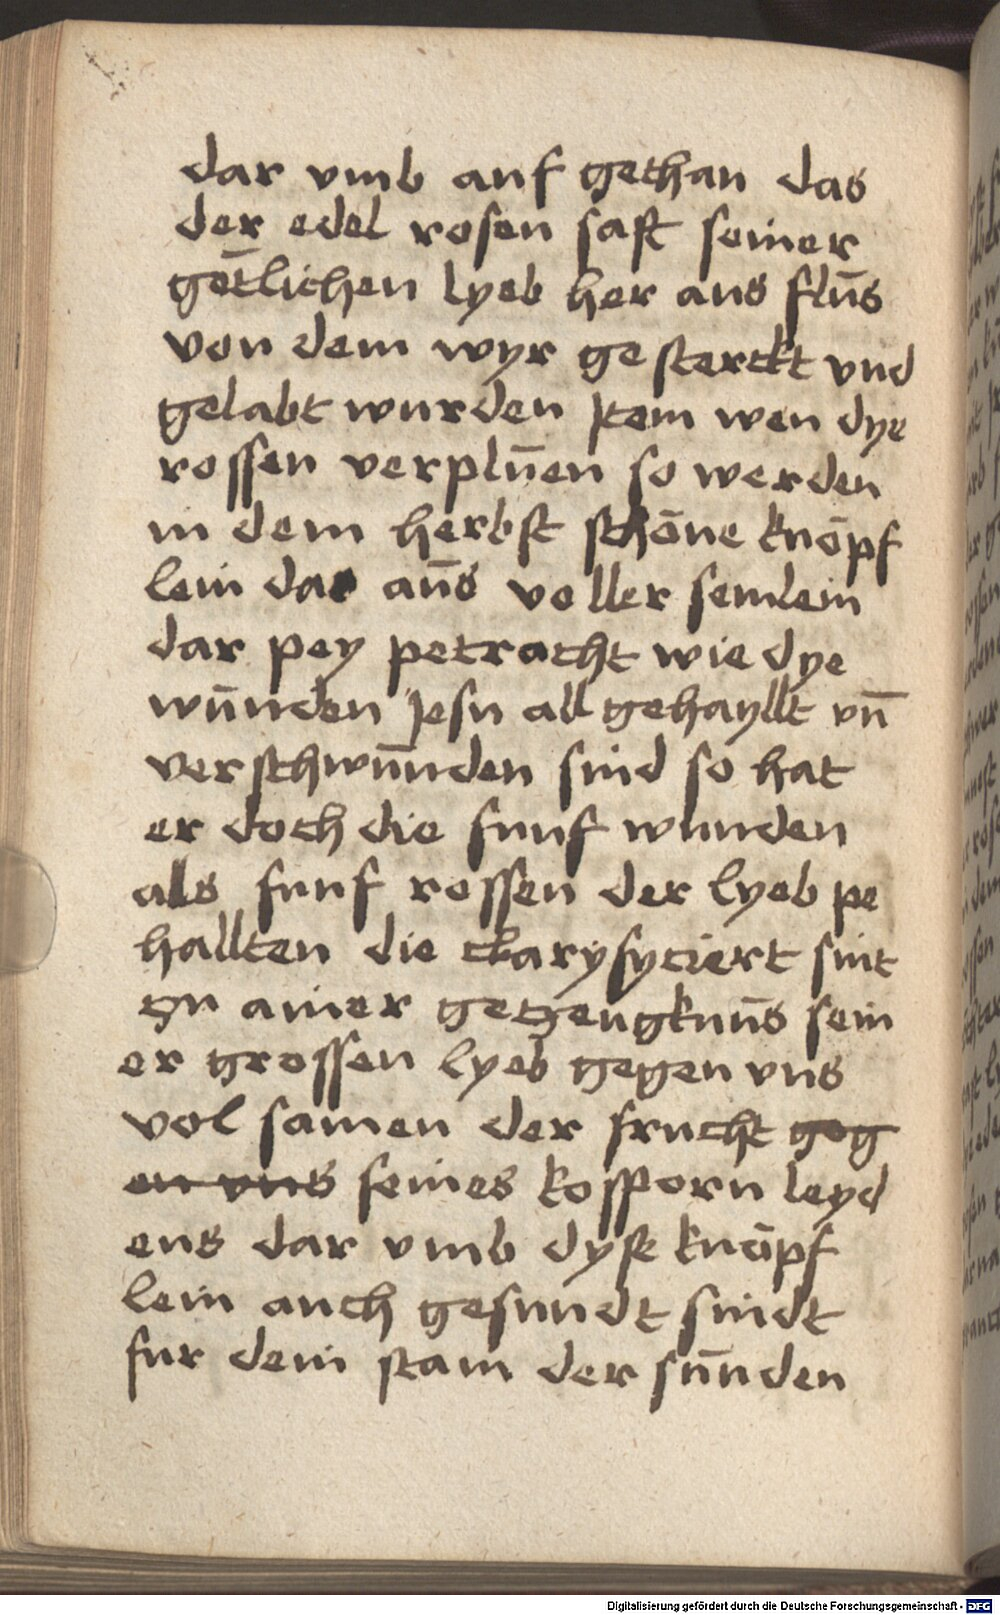 dar vmb auf gethan das
der edel rosen saft seiner
gōtlichen lyeb her aus flūs
von dem wyr gesterckt vnd
gelabt wurden Jtem wen dye
rossen verplūen so werden
in dem herbst schōne knōpf
lein dar aūs voller semlein
dar pey petracht wie dye
wūnden Jesu all gehayllt vn̄
verschwūnden sind so hat
er doch die funf wunden
als funf rossen der lyeb pe
hallten die clarysyciert sint
zu ainer getzeugknūs sein
er grossen lyeb gegen vns
vol samen der frucht geg
en vns seines kosporn leyd
ens dar vmb dyse knōpf
lein auch gesundt sindt
fur dein stam der sūnden
Digitalisierung gefördert durch die Deutsche Forschungsgemeinschaft - DFG